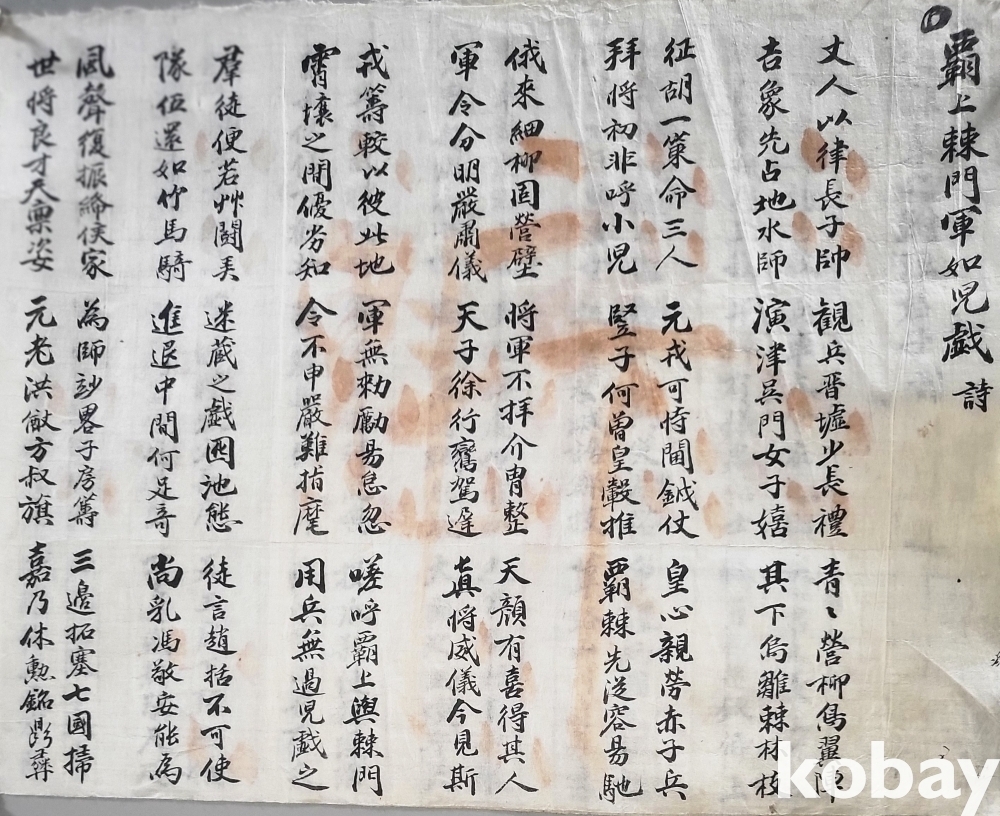 覇上棘門軍如児戱 詩
丈人以律長子帥
吉象先占地水師
觀兵晋墟少長禮
演津吳門女子嬉
青〻營柳鳥翼陣
其下烏騅棘林枝
征胡一策命三人
拜將初非呼小児
元戎可恃閫鉞仗
竪子何曾皇轂推
皇心親勞赤子兵
覇棘先從容易馳
俄來細柳固營壁
軍令分明嚴肅儀
將軍不拜介冑整
天子徐行鸞駕遲
天顔有喜得其人
真將威儀今見斯
戎籌較以彼此地
霄壤之間優劣知
軍無勑勵易怠忽
令不申嚴難指麾
嗟呼覇上與棘門
用兵無過児戱之
羣徒便若艸鬪美
隊伍還如竹馬騎
迷藏之戱囦池態
進退中間何足奇
徒言趙括不可使
尚乳馮敬安能爲
風聲復振絳侯家
世將良才天稟姿
為師訬畧子房籌
元老洪猷方叔旗
三邊拓塞七國掃
嘉乃休勳銘鼎彛
kobay